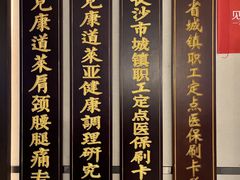 见康道莱肩颈腰腿痛专
见康道莱亚健康调理研究
长沙市城镇职工定点医保刷卡
省城镇职工定点医保刷卡
见